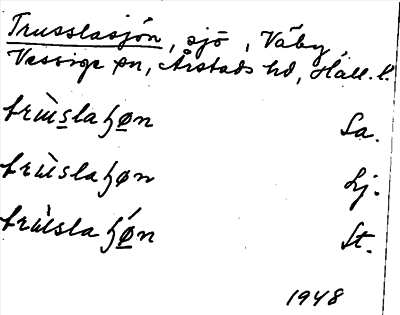 Trusslasjön, sjö, Väby,
Vessige sn, Årstads hd, Hall. l.
trùslaɧøn Sa.
trùslaɧøn Lj.
trùslaɧǿn St.
1948